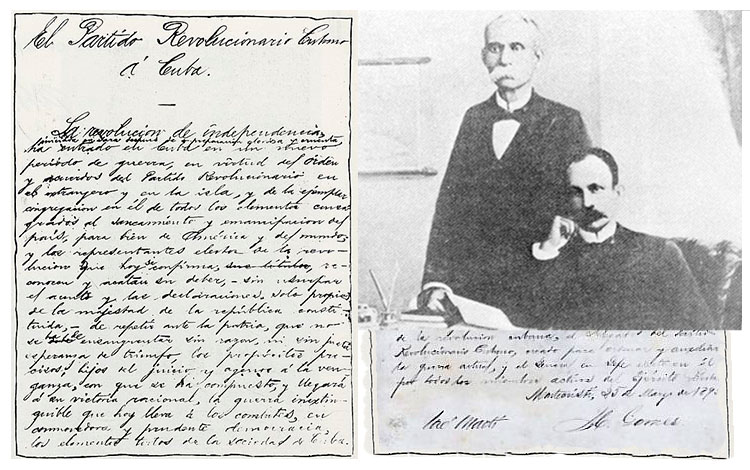 El Partido Revolucionario Cubano
á Cuba.
La revolucion de independencia,
iniciada en Yara despues de preparacion gloriosa y cruenta,
ha entrado en Cuba en un nuevo
periodo de guerra, en virtud del orden
y acuerdos del Partido Revolucionario en
el extranjero y en la isla, y de la ejemplar
congregacion en él de todos los elementos consa
grados al saneamiento y emancipacion del
país, para bien de América y del mundo;
y los representantes electos de la revo-
lucion que hoy se confirma, re-
conocen y acatan su deber, - sin usurpar
el acento y las declaraciones solo propias
de la majestad de la república consti-
tuida, - de repetir ante la patria, que no
se ha de ensangrentar sin razon, ni sin justa
esperanza de triunfo, los propósitos pre-
cisos, hijos del juicio y agenos a la ven-
ganza, con que se ha compuesto, y llegará
á su victoria racional, la guerra inextin-
guible que hoy lleva á los combates, en
conmovedora y prudente democracia,
los elementos todos de la sociedad de Cuba.
de la revolucion cubana, el Delegado del Partido
Revolucionario Cubano, creado para ordenar y auxiliar
la guerra actual, y el General en Jefe electo en él
por todos los miembros activos del Ejército
Montecristi, 25 de Marzo de 189
José Martí M. Gomez